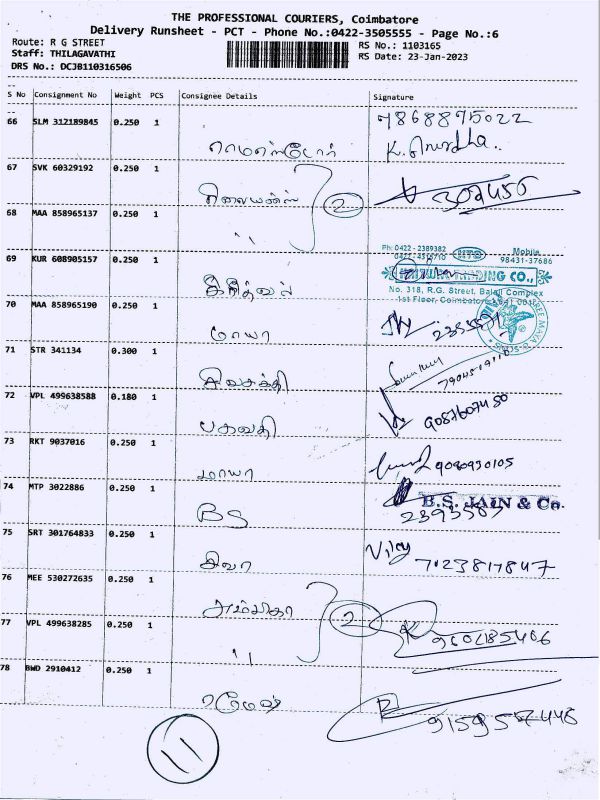 THE PROFESSIONAL COURIERS, Coimbatore
Delivery Runsheet - PCT - Phone No.:0422-3505555 - Page No.:6
Route: R G STREET
Staff: THILAGAVATHI
DRS No.: DCJB110316506
RS No.: 1103165
RS Date: 23-Jan-2023
S No Consignment No Weight PCS Consignee Details Signature
66 SLM 312189845 0.250 1 9868895022
K. Anurdha..
67 SVK 60329192 0.250 1 2
68 MAA 858965137 0.250 1 ''
69 KUR 608905157 0.250 1
Ph: 0422 - 2389382
Mobile
98431-37686
TRADING CO.,
No. 318, R.G. Street, Balaji Complex
1st Floor, Coimbatore-641 001
70 MAA 858965190 0.250 1 மாயா
71 STR 341134 0.300 1 சிவசக்தி
72 VPL 499638588 0.180 1 பகவதி
73 RKT 9037016 0.250 1 மாயா 9080930105
74 MTP 3022886 0.250 1 BS B.S. JAIN & Co.
75 SRT 301764833 0.250 1 சிவா Vijay 7123817847
76 MEE 530272635 0.250 1 அம்பிகா 2
77 VPL 499638285 0.250 1 ''
78 BWD 2910412 0.250 1 ரமேஷ்
11